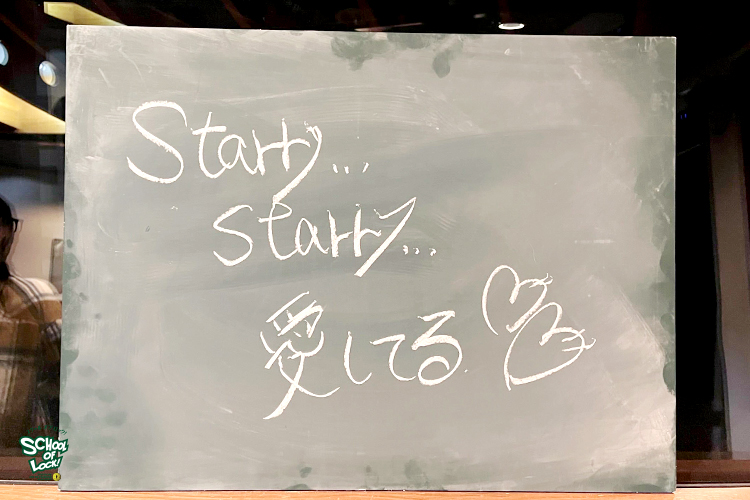 Starry...
Starry...
愛してる
SCHOOL
OF
LOCK!